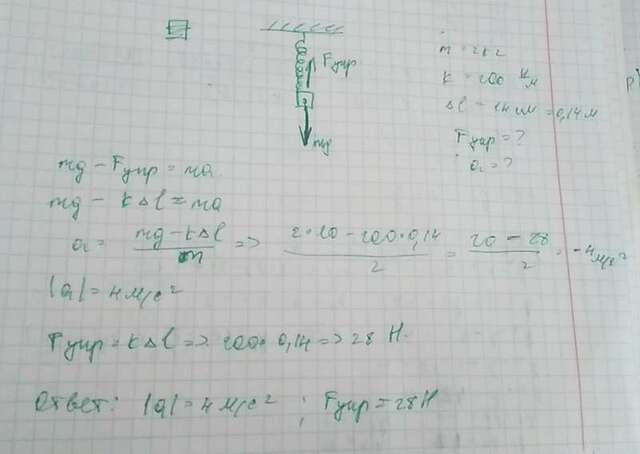 Fупр
mg
m = 2кг
k = 200 Н/м
Δl = 14 см = 0,14 м
Fупр = ?
a = ?
mg - Fупр = ma
mg - kΔl = ma
a = (mg - kΔl)/m => (2·10 - 200·0,14)/2 = (20 - 28)/2 = -4 м/с²
|a| = 4 м/с²
Fупр = kΔl => 200·0,14 => 28 Н.
Ответ: |a| = 4 м/с² ; Fупр = 28 Н